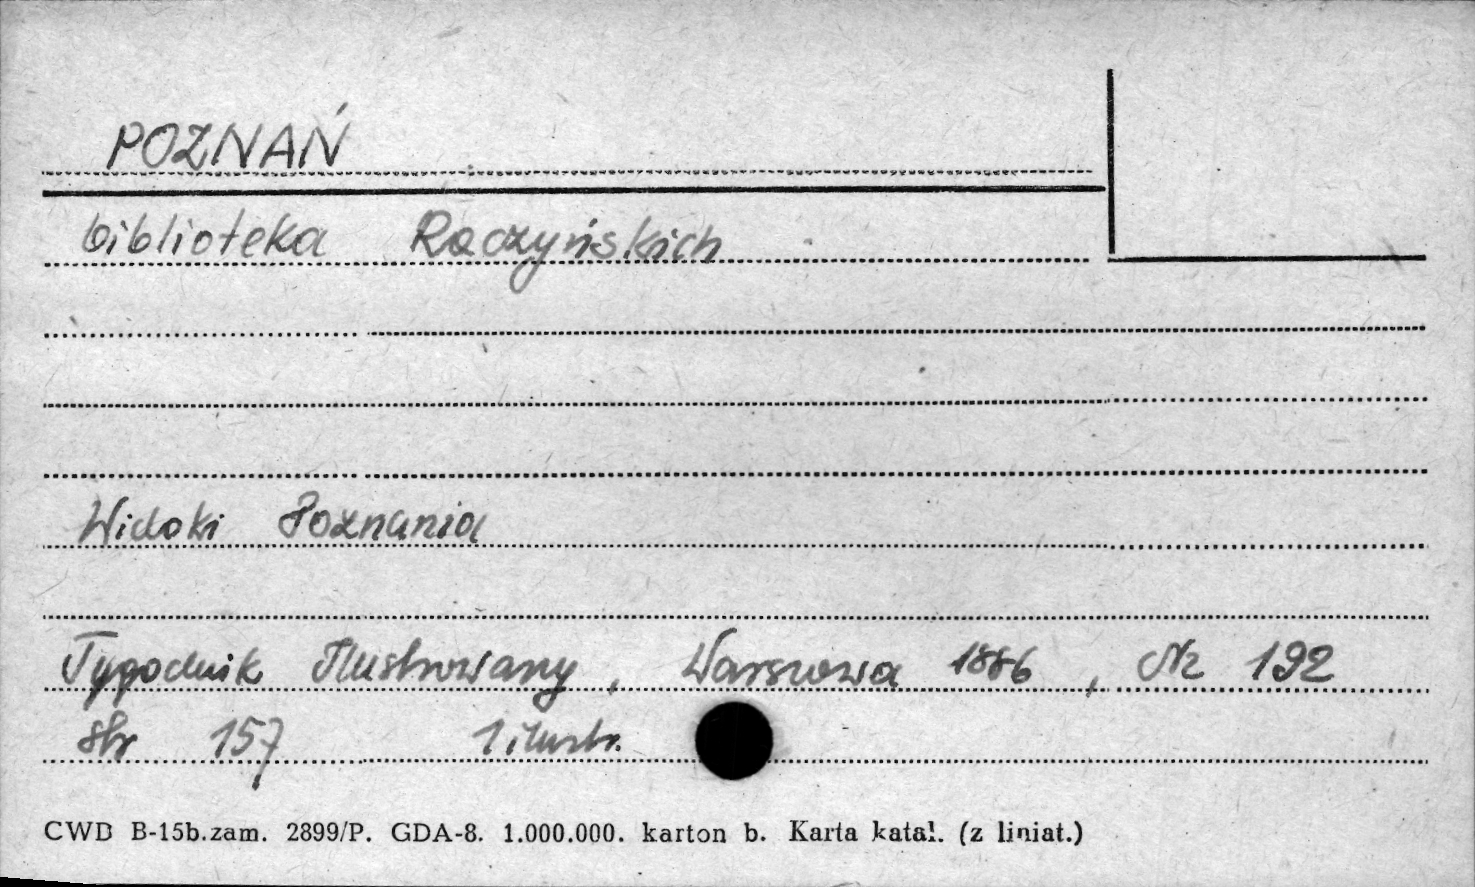 POZNAŃ
biblioteka Raczyńskich
Widoki Poznania
Tygodnik Ilustrowany, Warszawa 1886, Nr 192
str 157 1 ilustr.
CWD B-15b.zam. 2899/P. GDA-8. 1.000.000. karton b. Karta katal. (z liniat.)